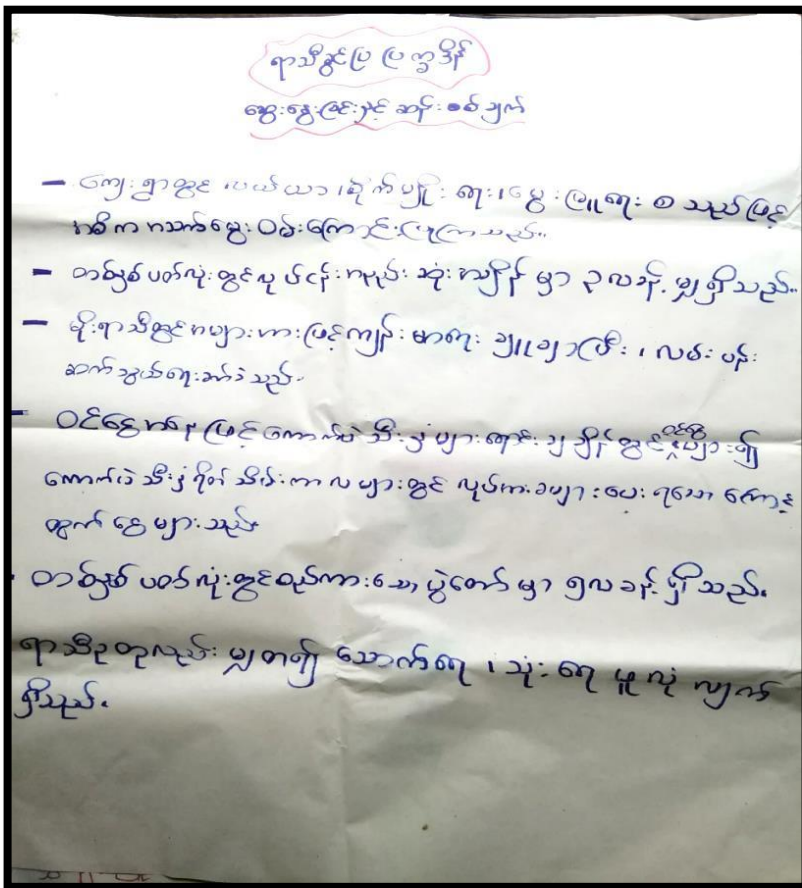 ရာသီခွင်ပြ ပြက္ခဒိန်
ဆွေးနွေးခြင်းနှင့် ဆန်းစစ်ချက်
- ကျေးရွာတွင် လယ်ယာ ၊ စိုက်ပျိုးရေး ၊ မွေးမြူရေး စသည်ဖြင့်
အဓိက အသက်မွေးဝမ်းကြောင်းပြုကြသည်။
- တစ်နှစ်ပတ်လုံးတွင် လုပ်ငန်းနည်းဆုံးအချိန်မှာ ၃ လခန့်မျှရှိသည်။
- မိုးရာသီတွင် များအားဖြင့် ကျန်းမာရေး ချူချာပြီး ၊ လမ်းပန်း
ဆက်သွယ်ရေးခက်ခဲသည်။
- ဝင်ငွေအနေဖြင့် ကောက်ပဲသီးနှံများရောင်းချချိန်တွင် ဝင်ငွေများ၍
ကောက်ပဲသီးနှံရိတ်သိမ်းကာလများတွင် လုပ်အားခများပေးရသောကြောင့်
ထွက်ငွေများသည်
- တစ်နှစ်ပတ်လုံးတွင် စည်ကားသောပွဲတော်မှာ ၅ လခန့်ရှိသည်။
ရာသီဥတုလည်း မျှတ၍ သောက်ရေ ၊ သုံးရေ ဖူလုံလျက်
ရှိသည်။